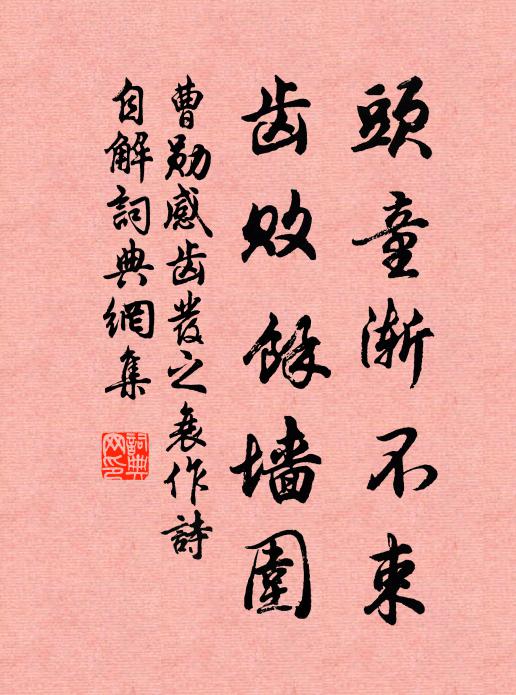 頭童漸不束
齿敗餘墙圍
曹勛感齿發之衰作詩
自解詞典網集
詞典網印